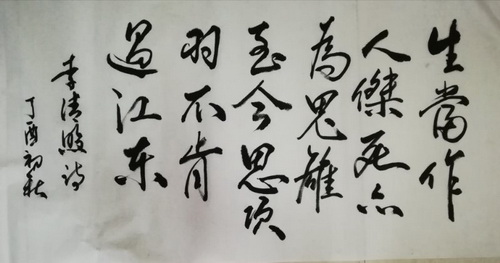 生當作
人傑死亦
為鬼雄
至今思项
羽不肯
過江东
李清照诗
丁酉初秋